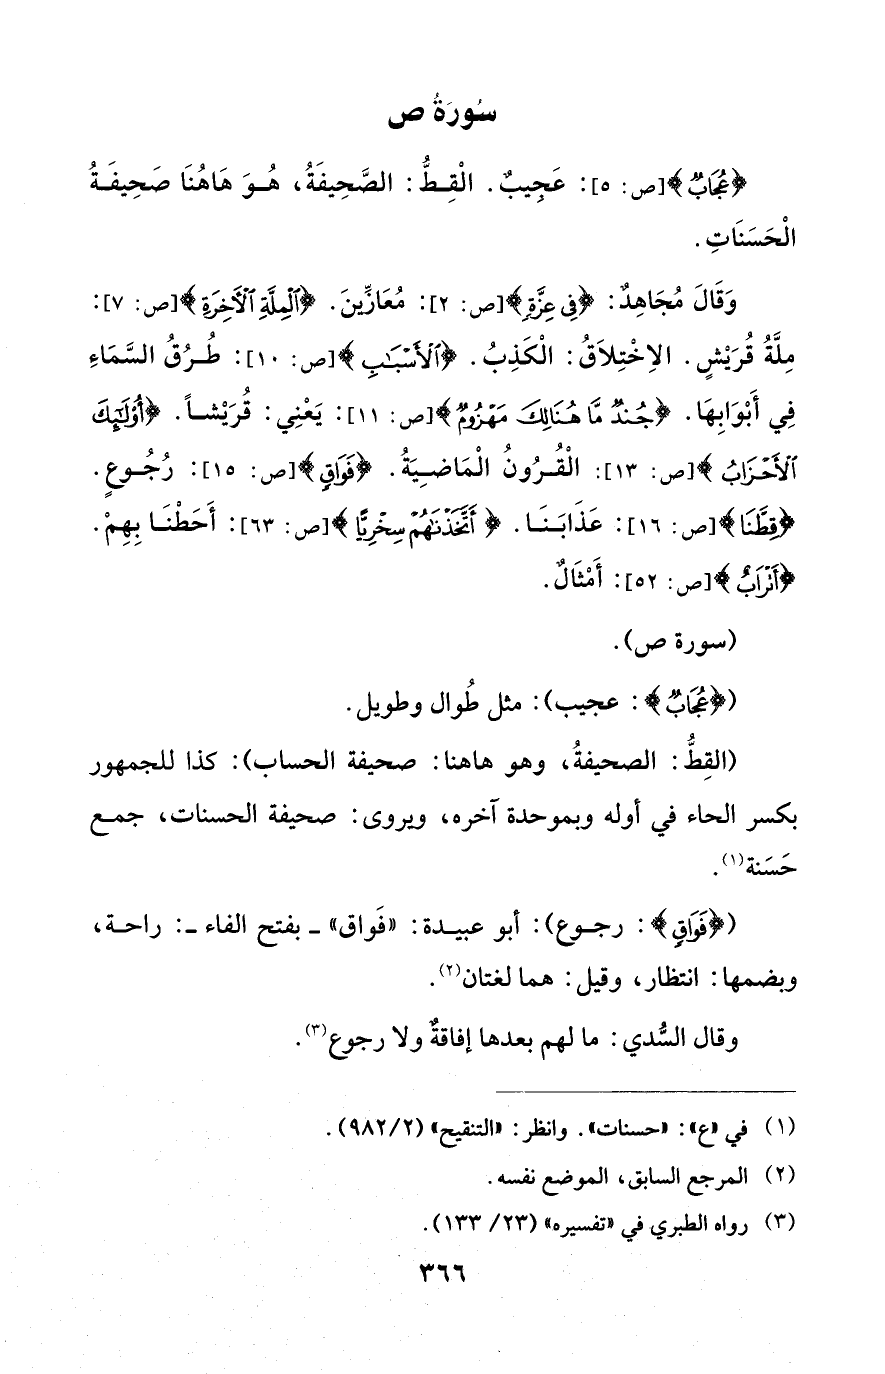 سُورَةُ ص
﴿عُجَابٌ﴾[ص: ٥]: عَجِيبٌ. الْقِطُّ: الصَّحِيفَةُ، هُوَ هَاهُنَا صَحِيفَةُ
الْحَسَنَاتِ.
وَقَالَ مُجَاهِدٌ: ﴿فِي عِزَّةٍ﴾[ص: ٢]: مُعَازِّينَ. ﴿ٱلْمِلَّةِ ٱلْآخِرَةِ﴾[ص: ٧]:
مِلَّةُ قُرَيْشٍ. الِاخْتِلاَقُ: الْكَذِبُ. ﴿ٱلْأَسْبَٰبِ﴾[ص: ١٠]: طُرُقُ السَّمَاءِ
فِي أَبْوَابِهَا. ﴿جُندٌ مَّا هُنَالِكَ مَهْزُومٌ﴾[ص: ١١]: يَعْنِي: قُرَيْشاً. ﴿أُوْلَٰٓئِكَ
ٱلْأَحْزَابُ﴾[ص: ١٣]: الْقُرُونُ الْمَاضِيَةُ. ﴿فَوَاقٍ﴾[ص: ١٥]: رُجُوعٍ.
﴿قِطَّنَا﴾[ص: ١٦]: عَذَابَنَا. ﴿أَتَّخَذْنَٰهُمْ سِخْرِيًّا﴾[ص: ٦٣]: أَحَطْنَا بِهِمْ.
﴿أَتْرَابٌ﴾[ص: ٥٢]: أَمْثَالٌ.
(سورة ص).
(﴿عُجَابٌ﴾: عجيب): مثل طُوال وطويل.
(القِطُّ: الصحيفةُ، وهو هاهنا: صحيفة الحساب): كذا للجمهور
بكسر الحاء في أوله وبموحدة آخره، ويروى: صحيفة الحسنات، جمع
حَسَنة(١).
(﴿فَوَاقٍ﴾: رجوع): أبو عبيدة: «فَواق» ـ بفتح الفاء ـ: راحة،
وبضمها: انتظار، وقيل: هما لغتان(٢).
وقال السُّدي: ما لهم بعدها إفاقةٌ ولا رجوع(٣).
(١) في «ع»: «حسنات». وانظر: «التنقيح» (٢/ ٩٨٢).
(٢) المرجع السابق، الموضع نفسه.
(٣) رواه الطبري في «تفسيره» (٢٣/ ١٣٣).
٣٦٦